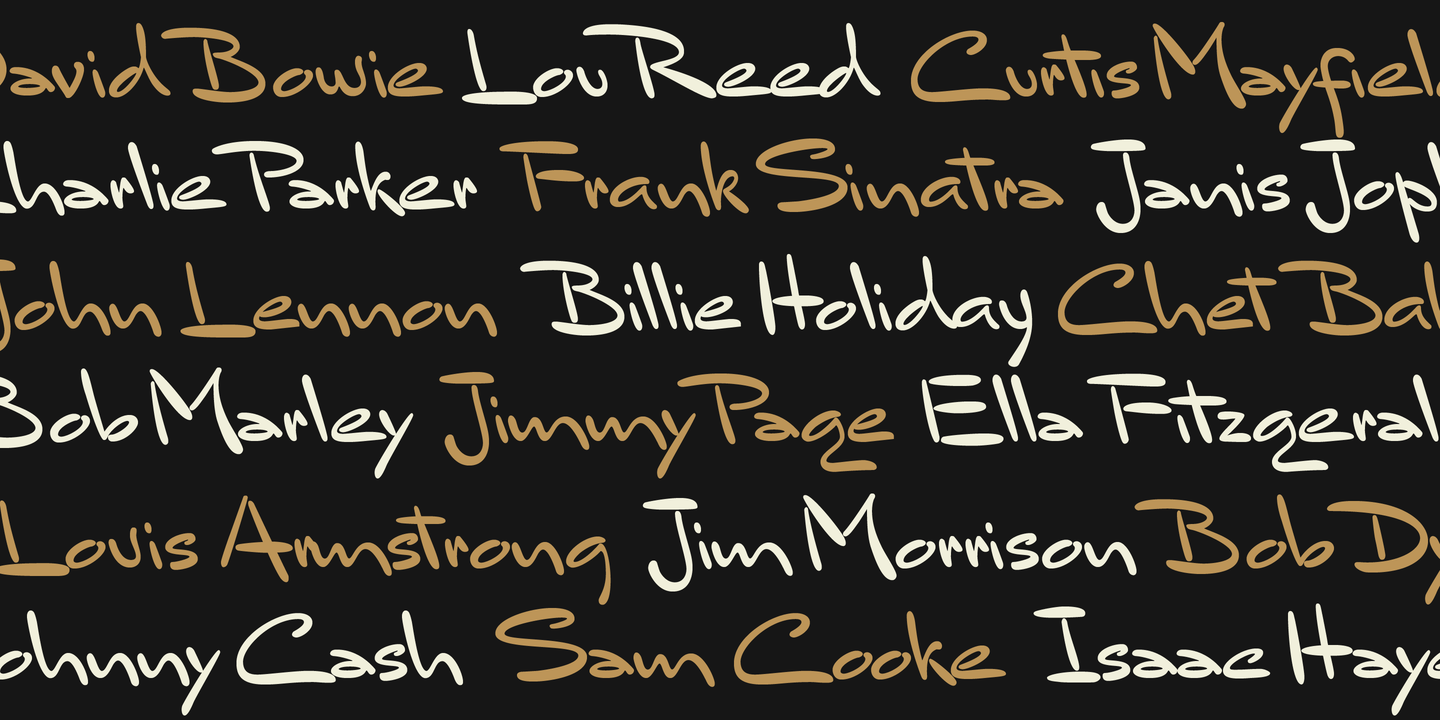 David Bowie Lou Reed Curtis Mayfiel
Charlie Parker Frank Sinatra Janis Jopl
John Lennon Billie Holiday Chet Bak
Bob Marley Jimmy Page Ella Fitzgeral
Louis Armstrong Jim Morrison Bob Dy
ohnny Cash Sam Cooke Isaac Haye